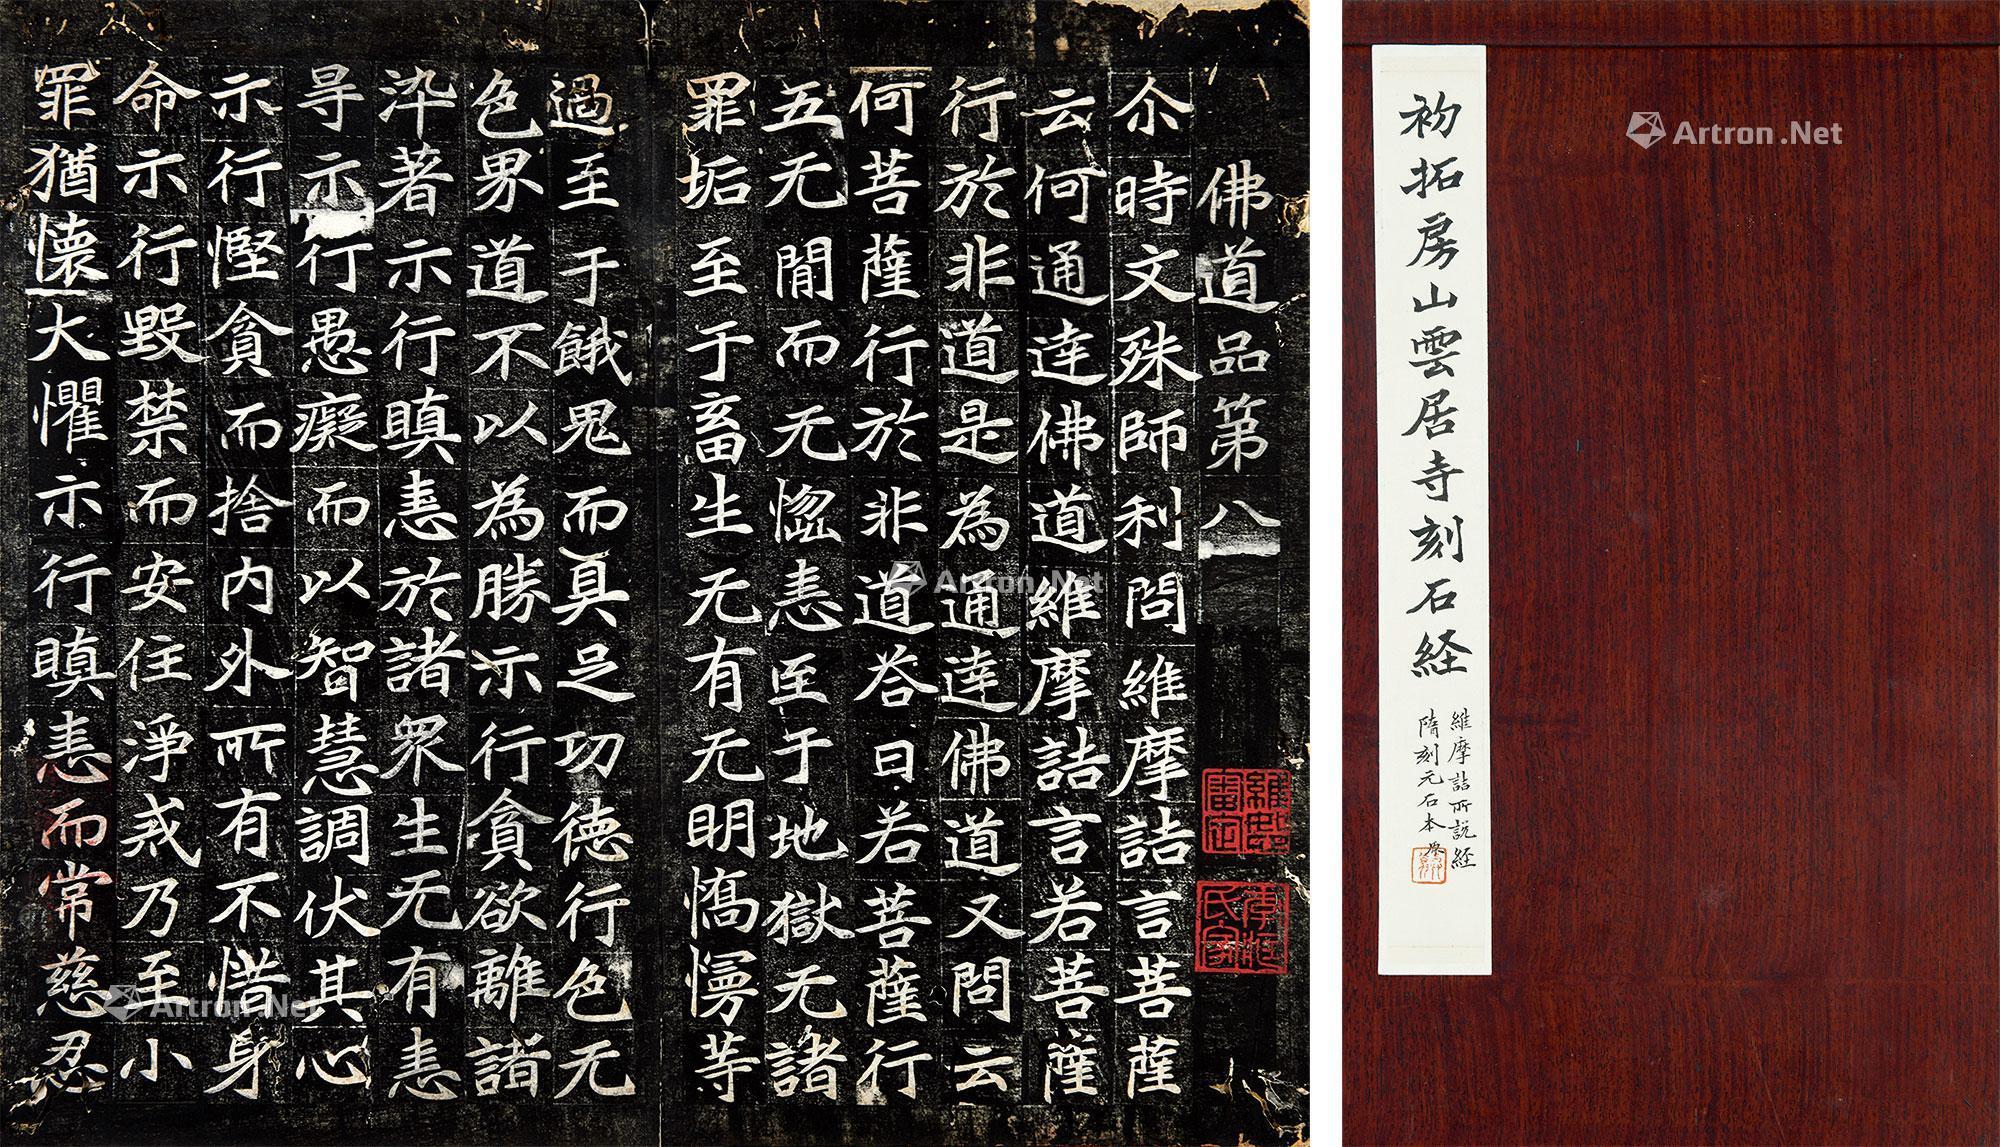 佛道品第八
尒時文殊師利問維摩詰言菩薩
云何通達佛道維摩詰言若菩薩
行於非道是為通達佛道又問云
何菩薩行於非道荅曰若菩薩行
五无閒而无惱恚至于地獄无諸
罪垢至于畜生无有无明憍慢等
過至于餓鬼而具足功德行色无
色界道不以為勝示行貪欲離諸
染著示行瞋恚於諸眾生无有恚
㝵示行愚癡而以智慧調伏其心
示行慳貪而捨内外所有不惜身
命示行毀禁而安住淨戒乃至小
罪猶懷大懼示行瞋恚而常慈忍
初拓房山雲居寺刻石経
維摩詰所説経
隋刻元石本
Artron.Net
Artron.Net
Artron.Net